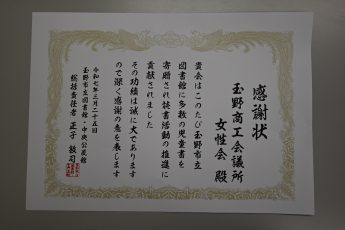 感謝状
玉野商工会議所
女性会 殿
貴会はこのたび玉野市立
図書館に多数の児童書を
寄贈され読書活動の推進に
貢献されました
その功績は誠に大であります
ので深く感謝の意を表します
令和七年三月二十五日
玉野市立図書館・中央公民館
総括責任者 正子 敦司